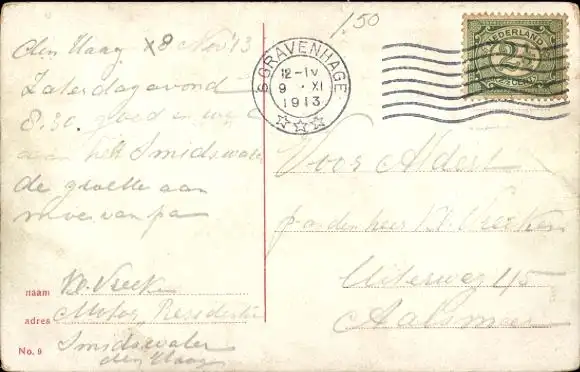 1.50
den Haag 8 Nov '13
Zaterdagavond
8.30. goed en wel
aan het Smidswater
de groette aan
moe. van pa
naam
adres Motor Residentie
Smidswater
den Haag
No. 9
'S GRAVENHAGE
12-IV
9 · XI
1913
NEDERLAND
2½
CENT
Voor Aldert
p.a. den heer Vreeken
Uiterweg 45
Aalsmeer